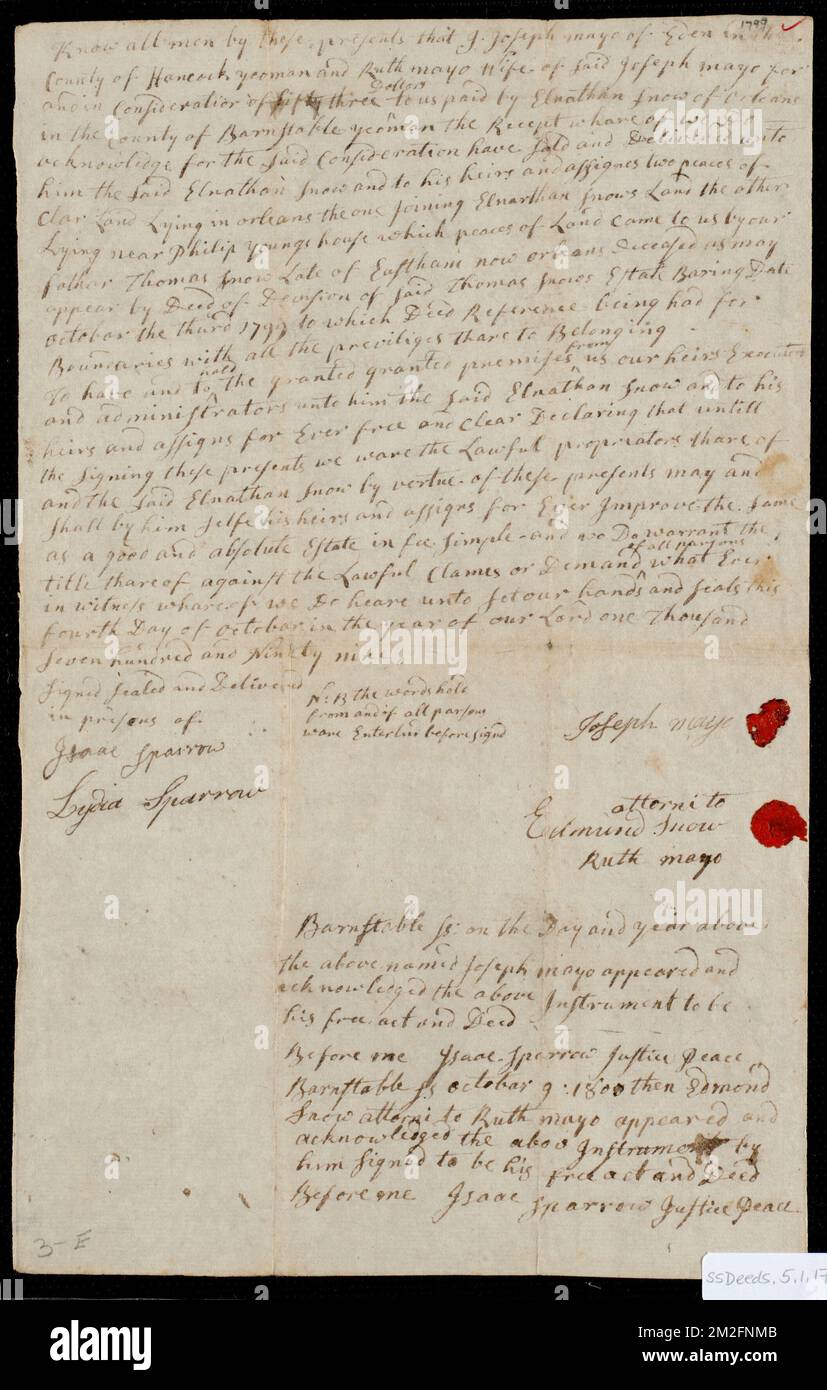 1799
Know all men by these presents that J. Joseph mayo of Eden in the
County of Hancock yeoman and Ruth mayo Wife of said Joseph mayo for
Dollars
and in Consideration of fifty three to us paid by Elnathan Snow of Orleans
in the County of Barnstable yeoman the Recept whare of we Do
acknowledge for the Said Consideration have Sold and Delivered unto
him the Said Elnathan Snow and to his heirs and assignes two peaces of
Clar Land Lying in orleans the one Joining Elnarthan Snows Land the other
Lying near Philip Youngs house which peaces of Land Came to us by our
father Thomas Snow Late of Eastham now orleans Deceased as may
appear by Deed of Devision of Said Thomas Snows Estate Baring Date
october the third 1799 to which Deed Reference being had for
Boundaries with all the previliges thare to Belonging
hold from
To have and to the granted granted premises us our heirs Executors
and administrators unto him the Said Elnathan Snow and to his
heirs and assigns for Ever free and Clear Declaring that untill
the Signing these presents we ware the Lawful propriators thare of
and the Said Elnathan Snow by vertue of these presents may and
Shall by him Selfe his heirs and assigns for Ever Improve the Same
as a good and absolute Estate in fee Simple and we Do warrant the
of all parsons
title thare of against the Lawful Clames or Demand what Ever
in witness whareof we Do heare unto Set our hands and Seals this
fourth Day of october in the year of our Lord one Thousand
Seven hundred and Ninety nine
Signed Sealed and Delivered
in presons of
Isaac Sparrow
Lydia Sparrow
N: B the words hold
from and of all parsons
ware Enterlin before Signd
Joseph mayo
attorni to
Edmund Snow
Ruth mayo
Barnstable Ss: on the Day and year above
the above named Joseph mayo appeared and
acknowledged the above Instrument to be
his free act and Deed
Before me Isaac Sparrow Justice Peace
Barnstable Ss october 9: 1800 then Edmond
Snow attorni to Ruth mayo appeared and
acknowledged the aboo Instrument by
him Signed to be his free act and Deed
Before me Isaac Sparrow Justice Peace
3-E
SSDeeds.5.1.17
alamy
Image ID: 2M2FNMB
www.alamy.com